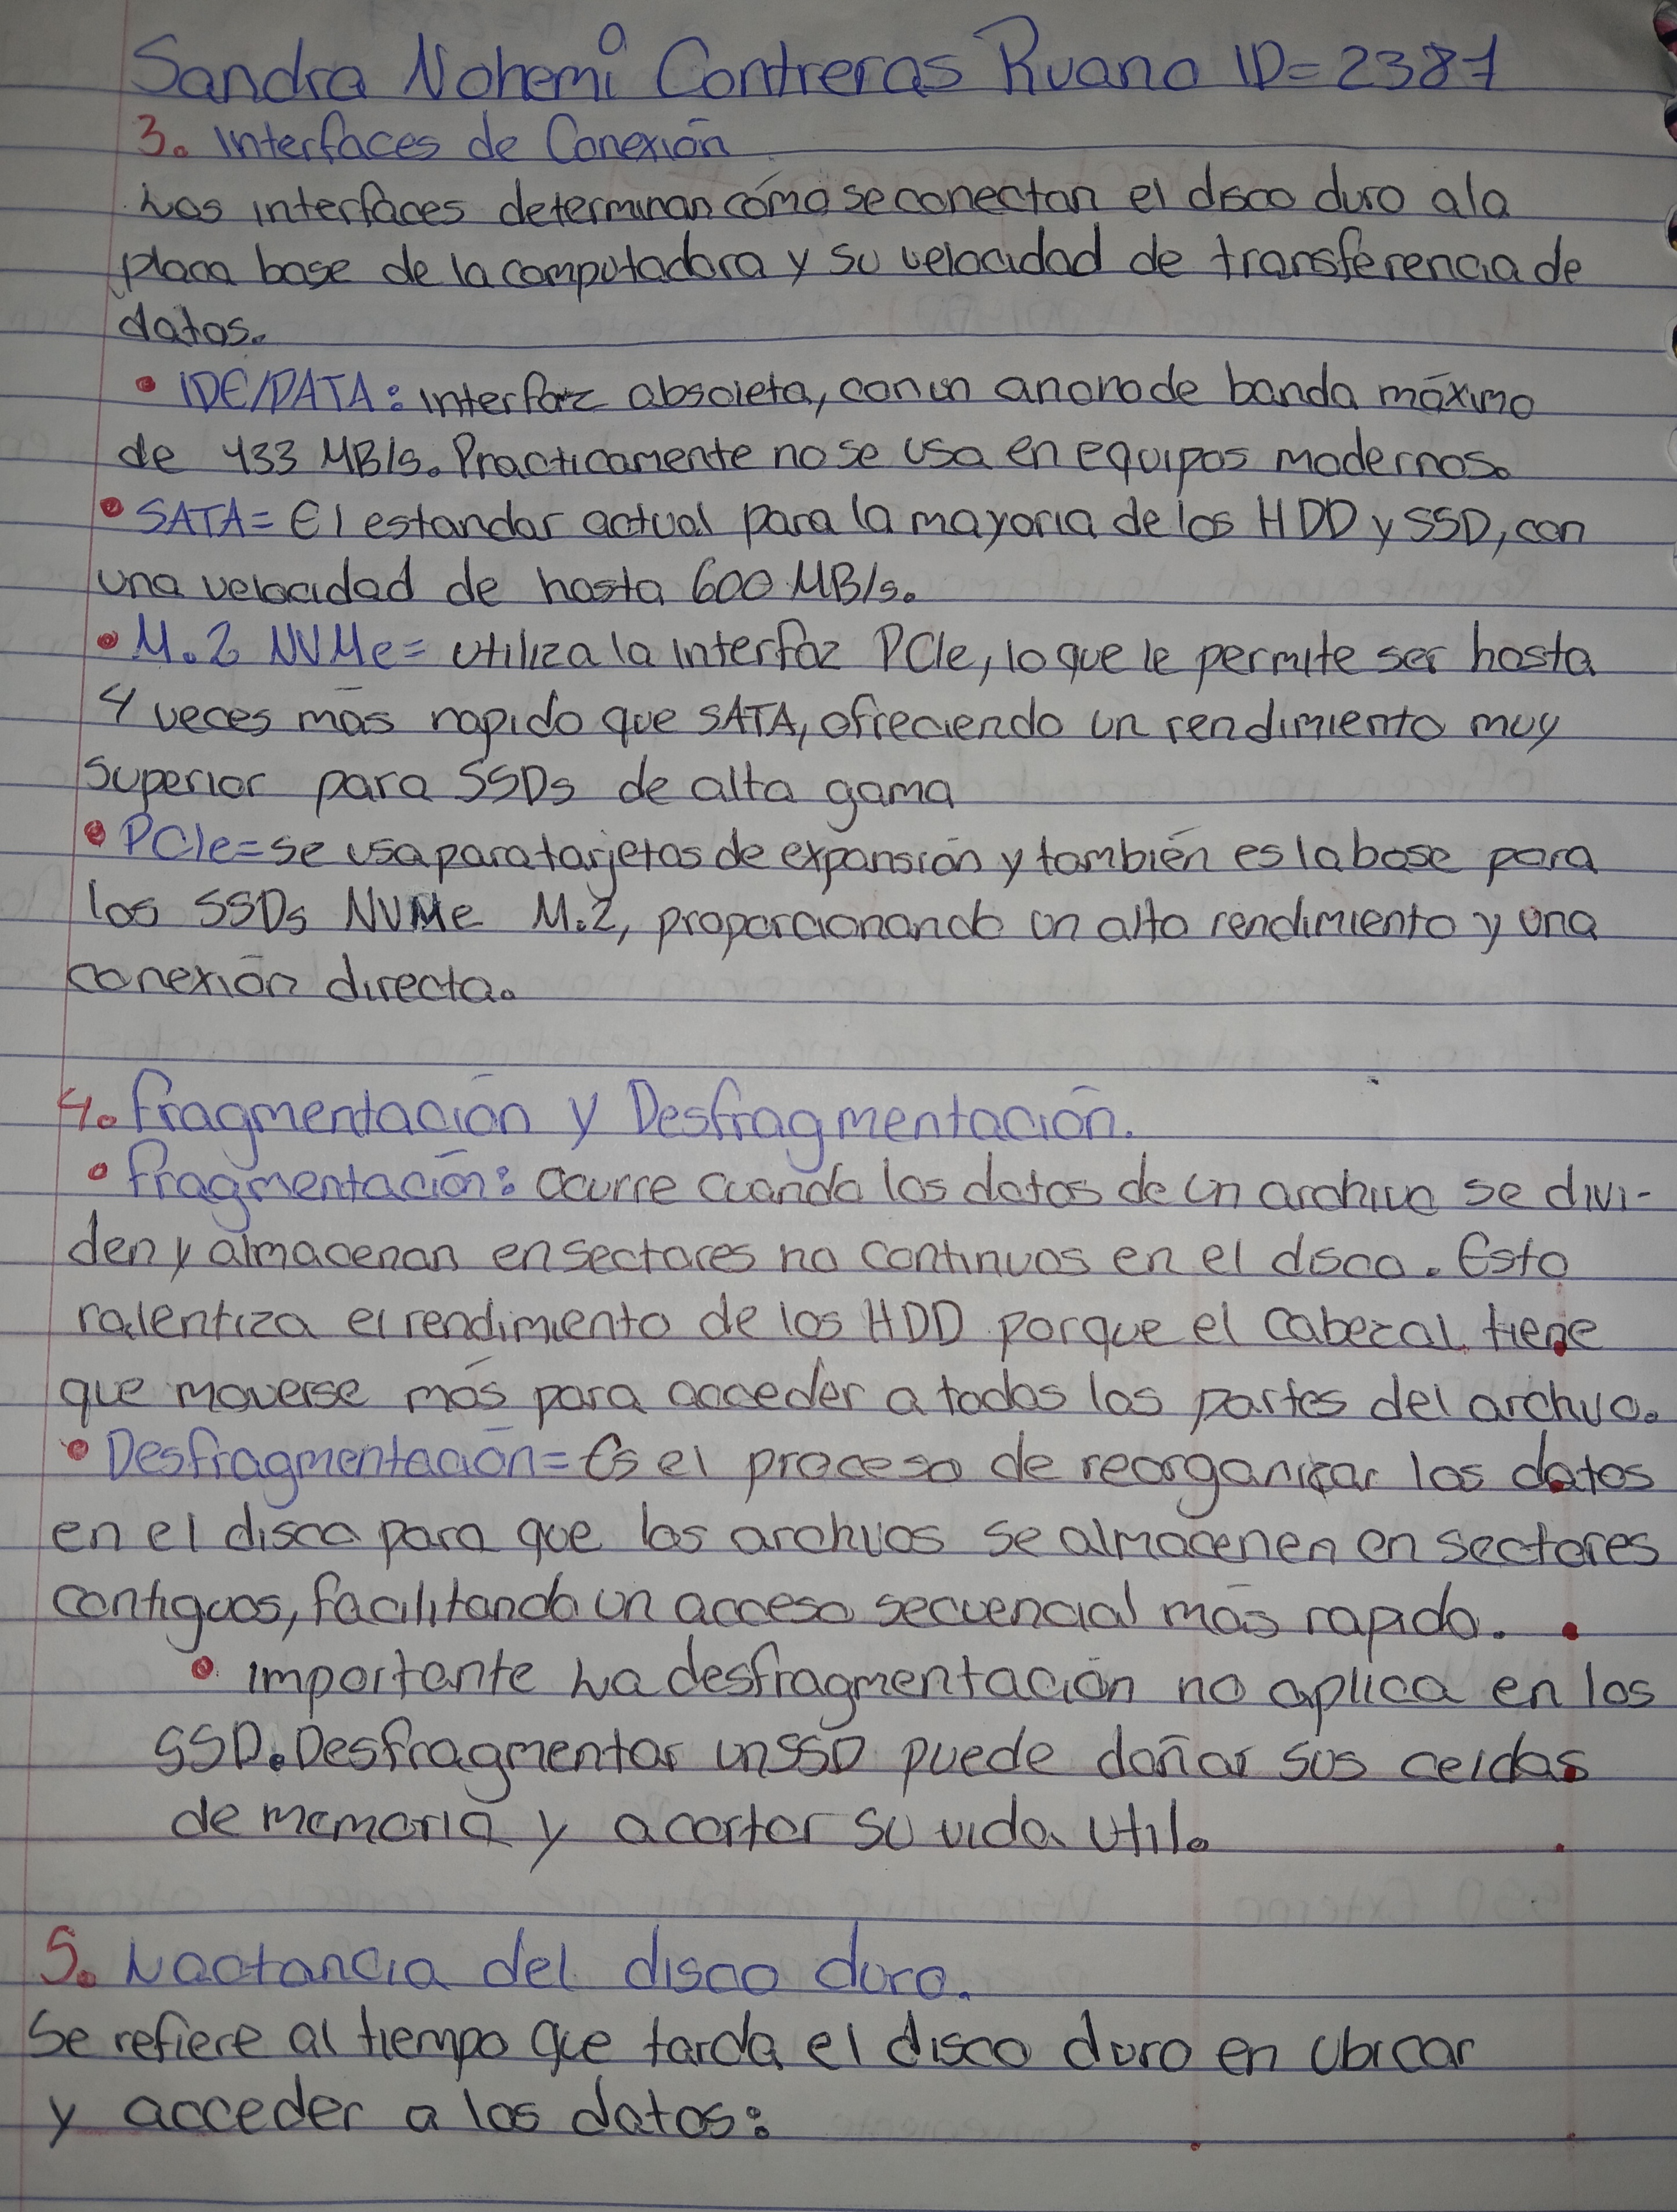 Sandra Nohemi Contreras Ruano ID=2387
3. Interfaces de Conexión
Las interfaces determinan cómo se conectan el disco duro a la
placa base de la computadora y su velocidad de transferencia de
datos.
• IDE/PATA: interfaz obsoleta, con un ancho de banda máximo
de 433 MB/s. Practicamente no se usa en equipos modernos.
• SATA= El estandar actual para la mayoria de los HDD y SSD, con
una velocidad de hasta 600 MB/s.
• M.2 NVMe= utiliza la interfaz PCIe, lo que le permite ser hasta
4 veces más rapido que SATA, ofreciendo un rendimiento muy
superior para SSDs de alta gama
• PCIe= se usa para tarjetas de expansión y también es la base para
los SSDs NVMe M.2, proporcionando un alto rendimiento y una
conexión directa.
4. Fragmentación y Desfragmentación.
• Fragmentación: Ocurre cuando los datos de un archivo se divi-
den y almacenan en sectores no continuos en el disco. Esto
ralentiza el rendimiento de los HDD porque el cabezal tiene
que moverse más para acceder a todas las partes del archivo.
• Desfragmentación= Es el proceso de reorganizar los datos
en el disco para que los archivos se almacenen en sectores
contiguos, facilitando un acceso secuencial más rapido.
• importante La desfragmentación no aplica en los
SSD. Desfragmentar un SSD puede dañar sus celdas
de memoria y acortar su vida util.
5. Lactancia del disco duro.
Se refiere al tiempo que tarda el disco duro en ubicar
y acceder a los datos: